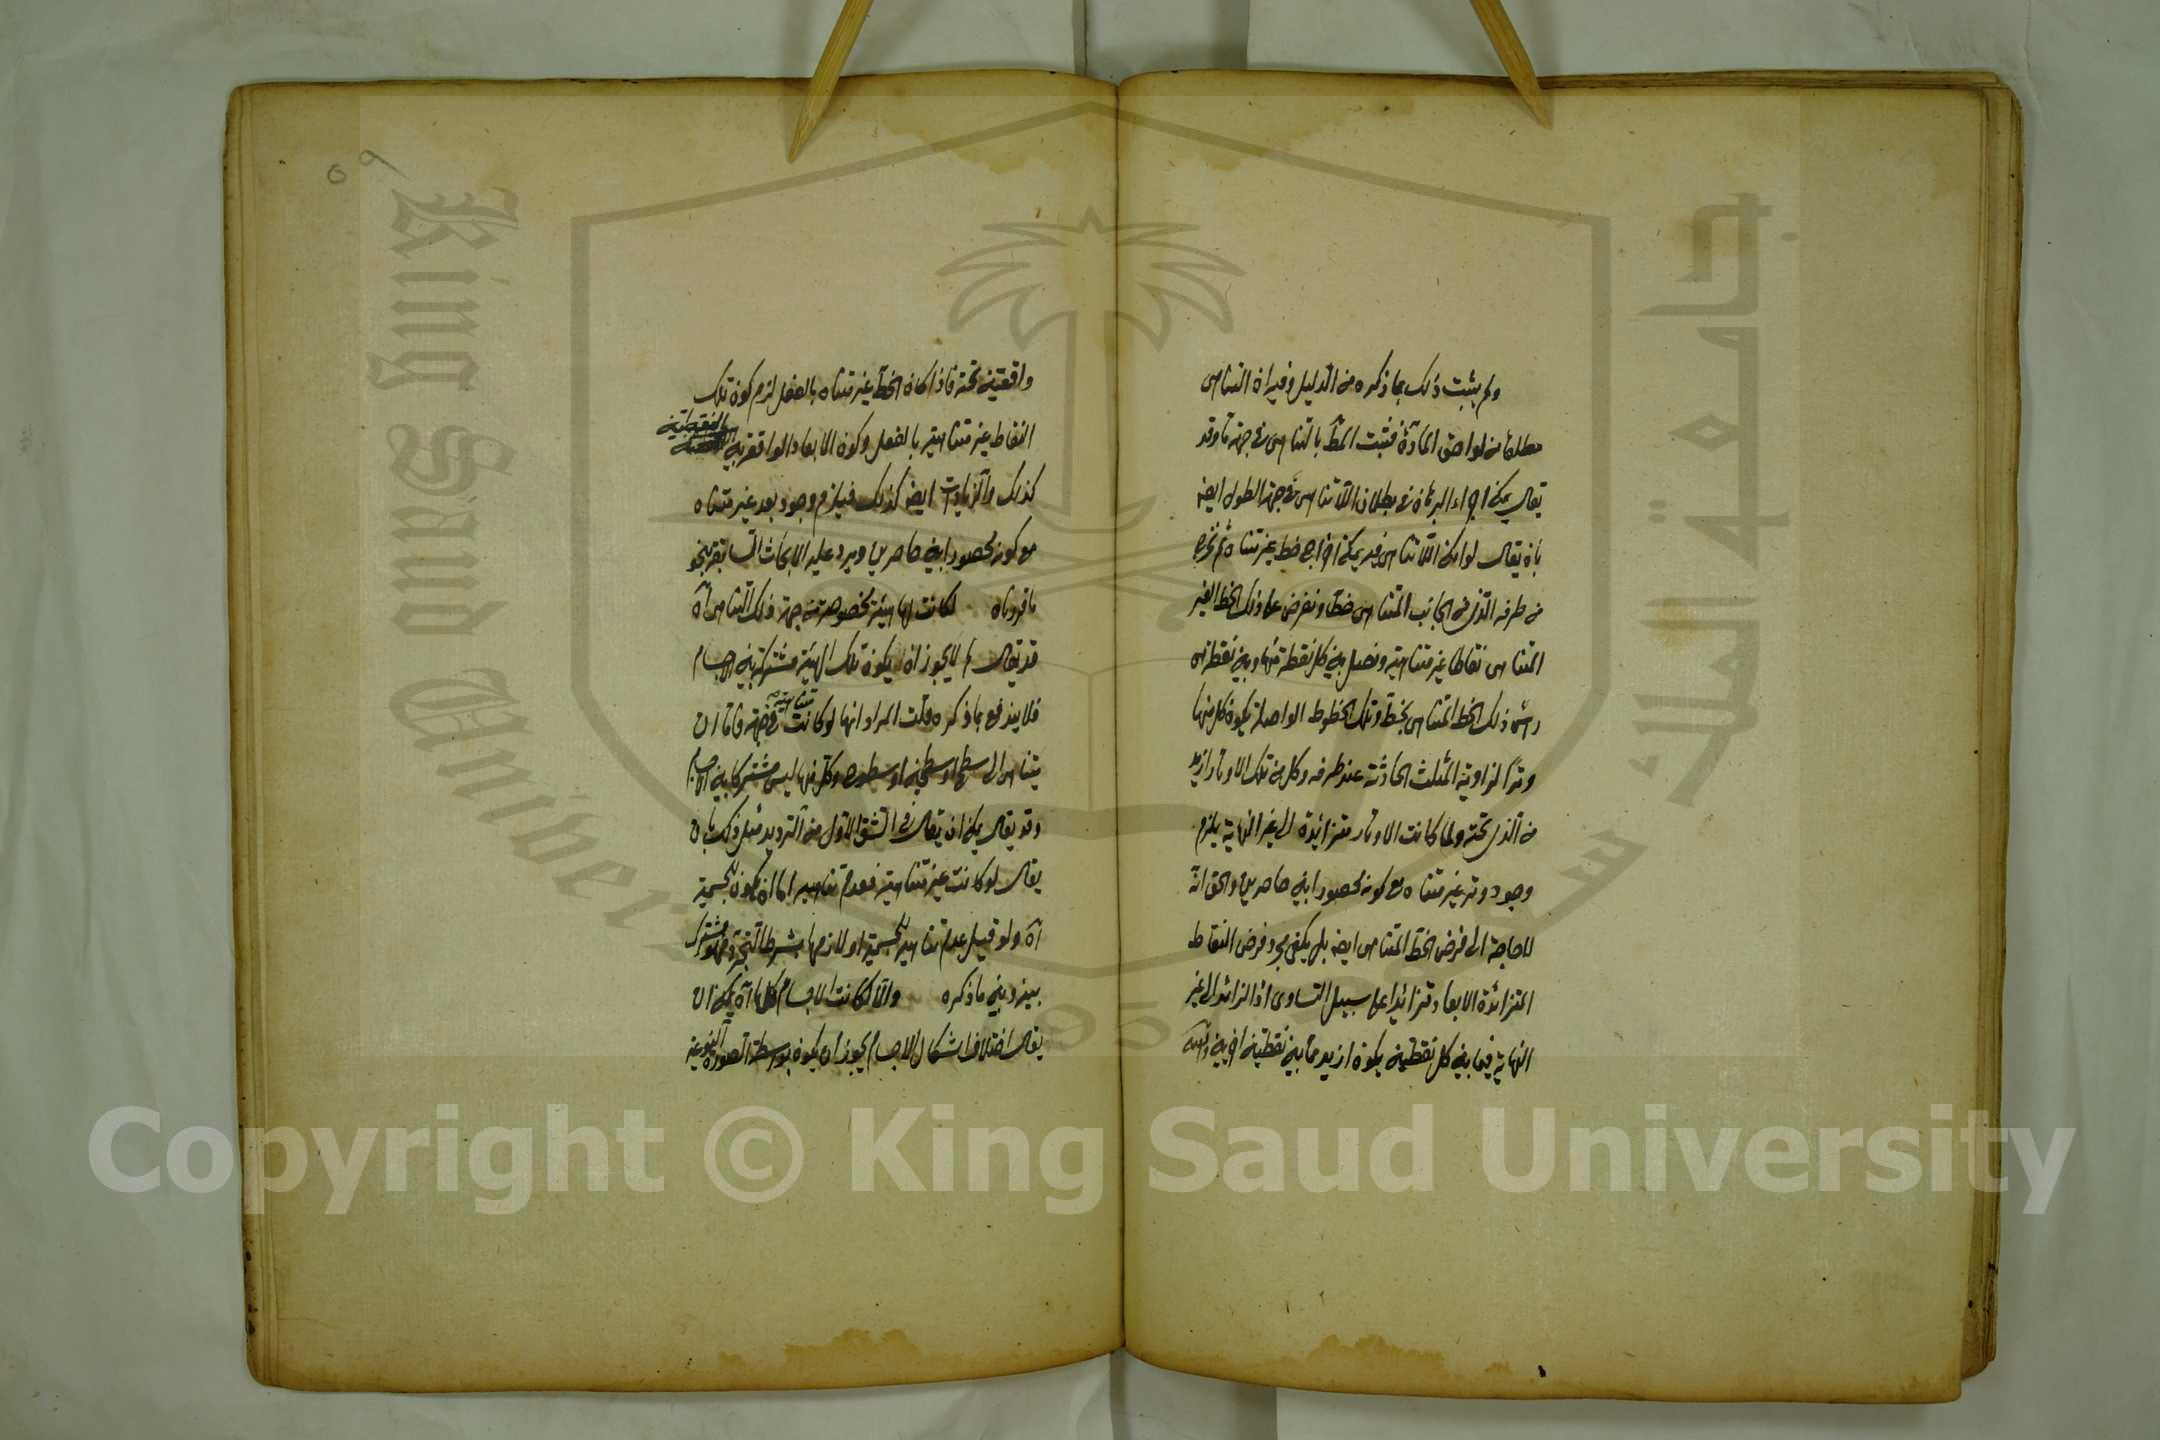 ولم يثبت ذلك بما ذكره من الدليل وفيه ان التناهى
مطلقا من لواحق المادة فثبت المط بالتناهى فى جهة ما وقد
يقال يمكن اجراء البرهان فى بطلان اللاتناهى فى جهة الطول ايضا
بان يقال لو امكن اللاتناهى فيه يمكن اخراج خط غير متناه ثم نخرج
من طرفه الذى فى الجانب المتناهى خطا ونفرض على ذلك الخط الغير
المتناهى نقاطا غير متناهية ونصل بين كل نقطة منها وبين نقطة هى
رأس ذلك الخط المتناهى بخط وتلك الخطوط الواصلة يكون كل منها
وترا لزاوية المثلث الحادثة عند طرفه وكل من تلك الاوتار ازيد
من الذى تحته ولما كانت الاوتار متزائدة الى غير النهاية يلزم
وجود وتر غير متناه مع كونه محصورا بين حاصرين والحق انه
لا حاجة الى فرض الخط المتناهى ايضا بل يكفى مجرد فرض النقاط
المتزائدة الابعاد تزائدا على سبيل التساوى اذ الزائد الى غير
النهاية فيما بين كل نقطتين يكون ازيد مما بين نقطتين اخريين
واقعتين تحته فاذا كان الخط غير متناه بالفعل لزم كون تلك
النقاط غير متناهية بالفعل وكون الابعاد الواقعة بين النقطتين
كذلك والزيادات ايضا كذلك فيلزم وجود بعد غير متناه
مع كونه محصورا بين حاصرين ويرد عليه الابحاث السابقة بنحو
ما قررناه لكانت لها هيئة مخصوصة من جهة ذلك التناهى آه
قد يقال لم لا يجوز ان يكون تلك الهيئة مشتركة بين الاجسام
فلا يندفع بما ذكره قلت المراد انها لو كانت متناهية فى جهة فاما ان
يتناهى الى سطح او سطحين او سطوح وكل منها ليس مشتركا بين الاجسام
وقد يقال يمكن ان يقال فى الشق الاول من الترديد مثل ذلك بان
يقال لو كانت غير متناهية فعدم تناهيه اما ان يكون للجسمية
آه ولو قيل عدم تناهيه للجسمية او للازمها بشرط التجرد فهو مشترك
بينه وبين ما ذكره والا لكانت الاجسام كلها آه يمكن ان
يقال اختلاف اشكال الاجسام يجوز ان يكون بواسطة الصورة النوعية
٥٩
Copyright © King Saud University
King Saud University
جامعة الملك سعود
1957